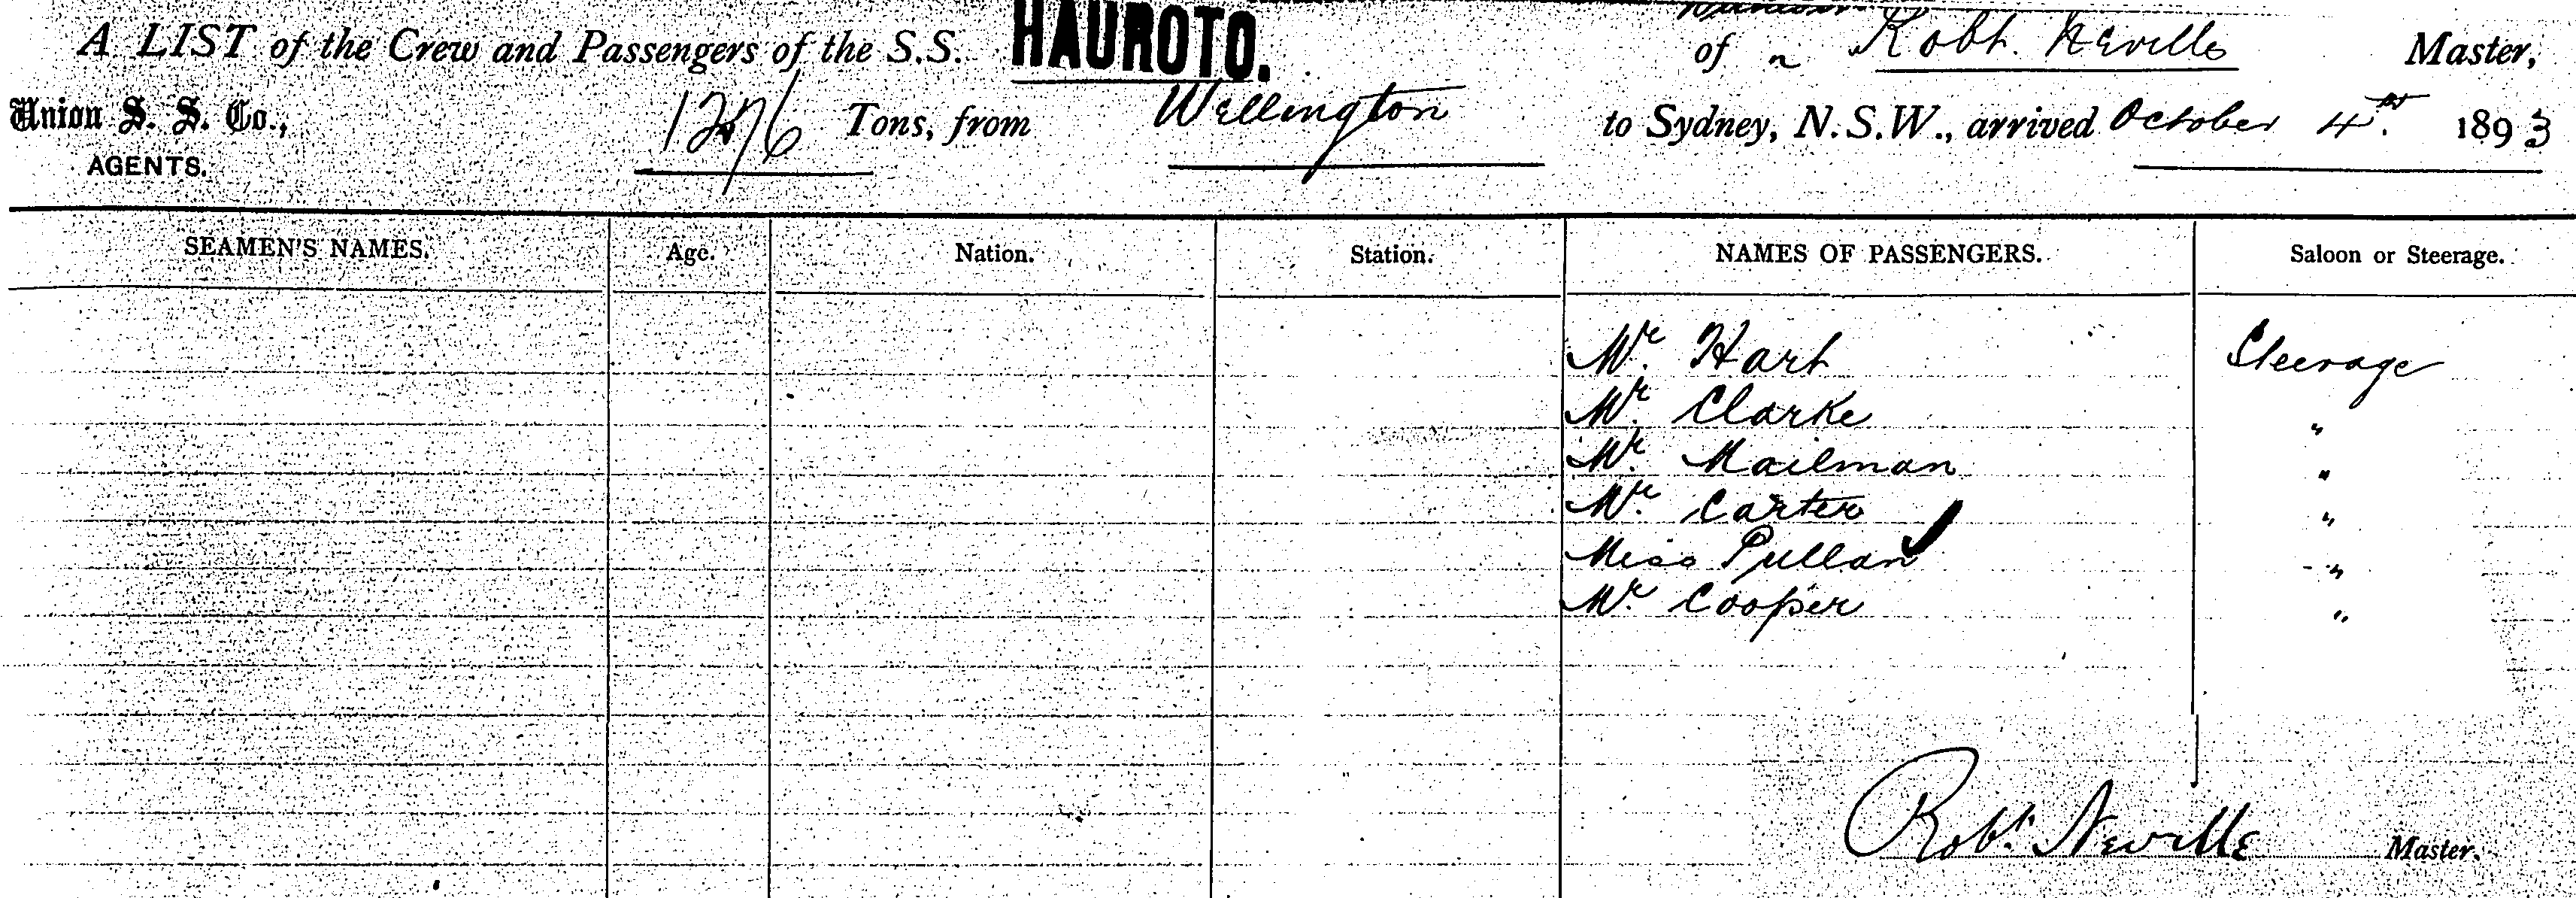 A LIST of the Crew and Passengers of the S.S. HAUROTO. of Robt. Neville Master,
Union S. S. Co., 1276 Tons, from Wellington to Sydney, N.S.W., arrived October 4th. 1893
AGENTS.
SEAMEN'S NAMES. Age. Nation. Station. NAMES OF PASSENGERS. Saloon or Steerage.
Mr. Hart Steerage
Mr. Clarke "
Mr. Mailman "
Mr. Carter "
Miss Pullan "
Mr. Cooper "
Robt. Neville Master.